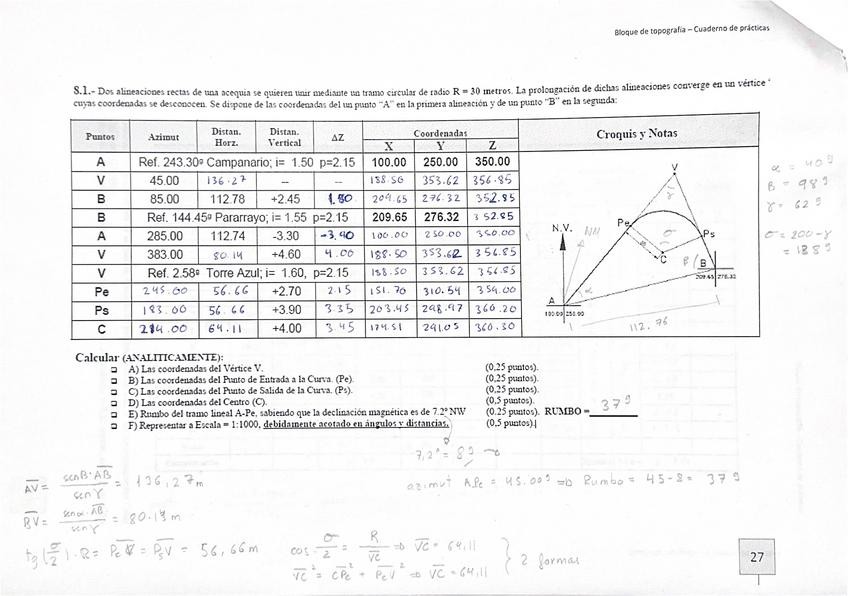 Bloque de topografía – Cuaderno de prácticas
8.1.- Dos alineaciones rectas de una acequia se quieren unir mediante un tramo circular de radio R = 30 metros. La prolongación de dichas alineaciones converge en un vértice
cuyas coordenadas se desconocen. Se dispone de las coordenadas del un punto "A" en la primera alineación y de un punto "B" en la segunda:
Puntos Azimut Distan. Horz. Distan. Vertical ΔZ Coordenadas X Y Z Croquis y Notas
A Ref. 243.30º Campanario; i= 1.50 p=2.15 100.00 250.00 350.00
V 45.00 136.27 -- -- 188.50 353.62 356.85
B 85.00 112.78 +2.45 1.80 209.65 276.32 352.85
B Ref. 144.45º Pararrayo; i= 1.55 p=2.15 209.65 276.32 352.85
A 285.00 112.74 -3.30 -3.90 100.00 250.00 350.00
V 383.00 80.14 +4.60 4.00 188.50 353.62 356.85
V Ref. 2.58º Torre Azul; i= 1.60, p=2.15 188.50 353.62 356.85
Pe 245.00 56.66 +2.70 2.15 151.70 310.54 359.00
Ps 183.00 56.66 +3.90 3.35 203.45 298.97 360.20
C 214.00 64.11 +4.00 3.45 174.51 291.05 360.30
V
γ
Pe
N.V.
NM
σ
Ps
R
C
β
B
209.65 276.32
A
α
100.00 250.00
112.76
α = 40g
B = 98g
γ = 62g
σ = 200-γ
= 138g
Calcular (ANALITICAMENTE):
A) Las coordenadas del Vértice V. (0,25 puntos).
B) Las coordenadas del Punto de Entrada a la Curva. (Pe). (0,25 puntos).
C) Las coordenadas del Punto de Salida de la Curva. (Ps). (0,25 puntos).
D) Las coordenadas del Centro (C). (0,5 puntos).
E) Rumbo del tramo lineal A-Pe, sabiendo que la declinación magnética es de 7.2º NW (0.25 puntos). RUMBO = 37g
F) Representar a Escala = 1:1000, debidamente acotado en ángulos y distancias. (0,5 puntos).
7,2º = 8g
azimut APe = 45.00g => Rumbo = 45-8 = 37g
AV = senB·AB / senγ = 136,27m
BV = senα·AB / senγ = 80.14 m
tg(σ/2)·R = PeV = PsV = 56,66m
cos σ/2 = R / VC => VC = 64,11
VC² = CPe² + PeV² => VC = 64,11
2 formas
27